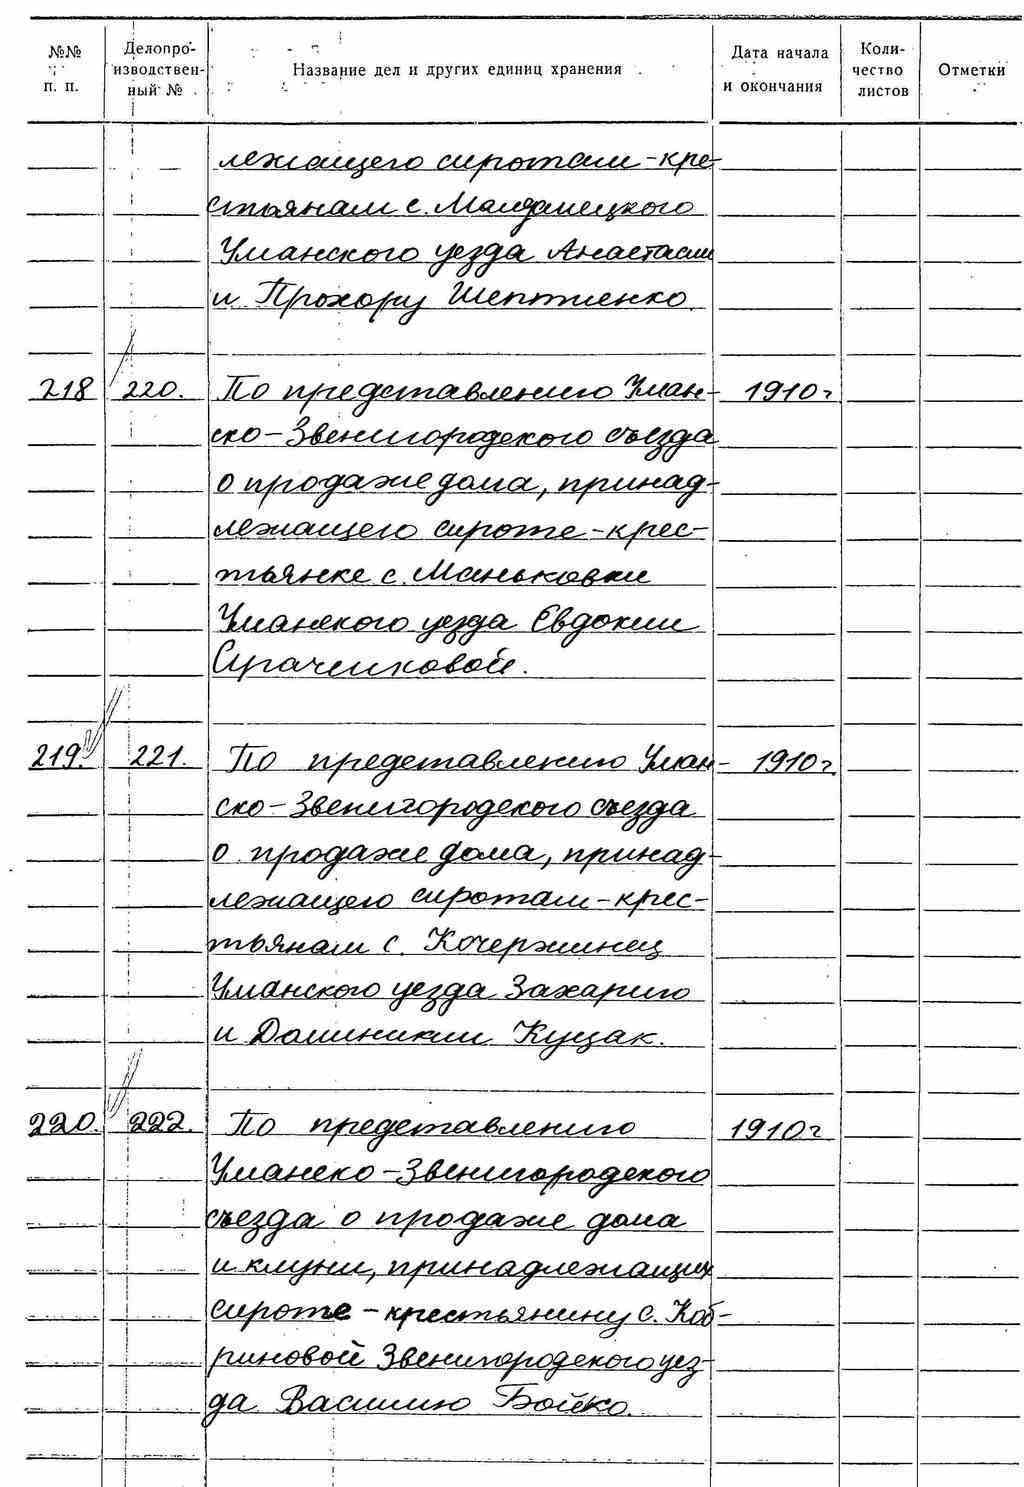 №№ п. п. Делопро- изводствен- ный № Название дел и других единиц хранения Дата начала и окончания Коли- чество листов Отметки
лежащего сиротам-кре-
стьянам с. Майданецкого
Уманского уезда Анастасии
и Прохору Шептиенко.
218 220. По представлению Уман- 1910г
ско-Звенигородского съезда
о продаже дома, принад-
лежащего сироте-крес-
тьянке с. Маньковки
Уманского уезда Евдокии
219. 221. По представлению Уман- 1910г.
ско-Звенигородского съезда
о продаже дома, принад-
лежащего сиротам-крес-
тьянам с. Кочержинец
Уманского уезда Захарию
и Доминикии Кущак.
220. 222. По представлению 1910г
Уманско-Звенигородского
съезда о продаже дома
и клуни, принадлежащих
сироте-крестьянину с. Коб-
риновой Звенигородского уез-
да Василию Бойко.